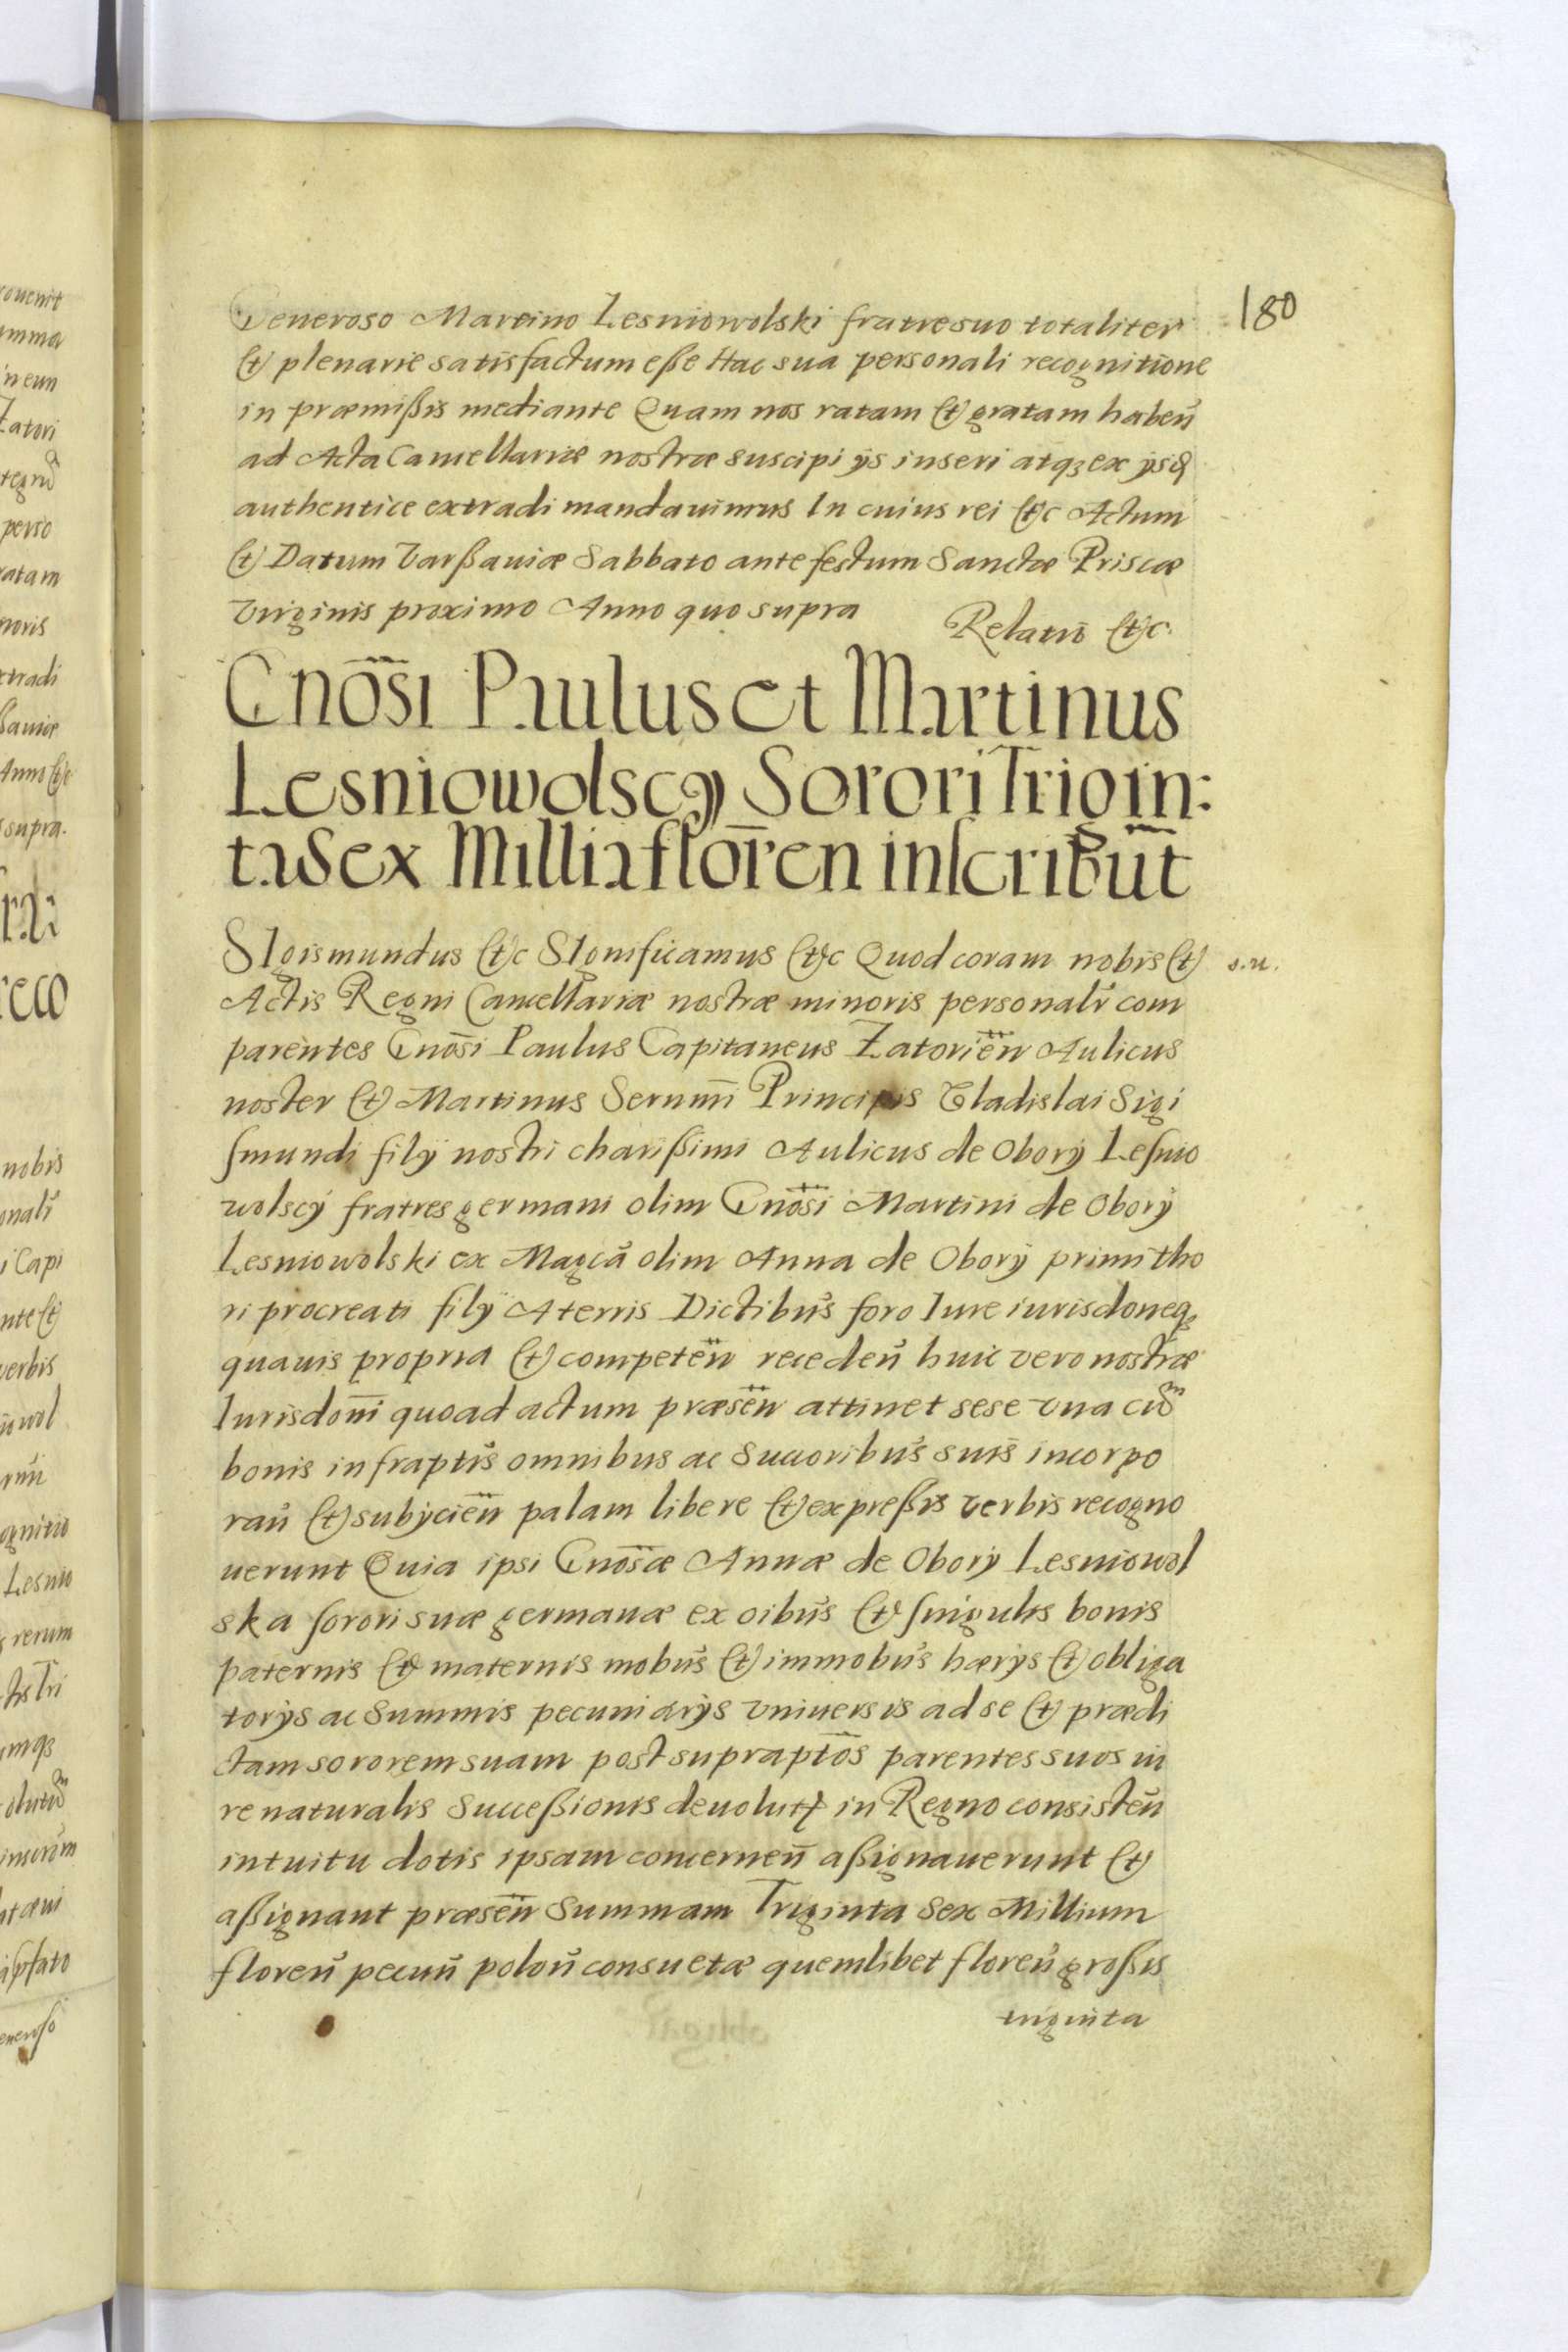 180
Generoso Martino Lesniowolski fratre suo totaliter
et plenarie satisfactum eße Hac sua personali recognitione
in præmißis mediante Quam nos ratam et gratam habeń
ad Acta Cancellariæ nostræ suscipi ijs inseri atqꝫ ex ijsđ
authentice extradi mandauimus In cuius rei etc Actum
et Datum Varßauiæ Sabbato ante festum Sanctæ Priscæ
Virginis proximo Anno quo supra
Relatio etc.
Gnōsi Paulus et Martinus
Lesniowolscÿ Sorori Trigin:
ta Sex Millia floren̄ inscribūt
SIgismundus etc SIgnificamus etc Quod coram nobis et
s.n.
Actis Regni Cancellariæ nostræ minoris personalr̃ com
parentes Gnōsi Paulus Capitaneus Zatorien̄ Aulicus
noster et Martinus Sernmi Principis Vladislai Sigi
smundi filÿ nostri charißimi Aulicus de Oborÿ Lesnio
wolscÿ fratres germani olim Gnōsi Martini de Oborÿ
Lesniowolski ex Magcā olim Anna de Oborÿ primi tho
ri procreati filÿ A terris Dictibūs foro Iure iurisdoneqꝫ
quauis propria et competen̄ receden̄ huic vero nostræ
Iurisdonī quoad actum præsen̄ attinet sese vna cum
bonis infraptīs omnibus ac Succoribūs suis incorpo
ran̄ et subÿcien̄ palam libere et expreßis verbis recogno
uerunt Quia ipsi Gnōsæ Annæ de Oborÿ Lesniowol
ska sorori suæ germanæ ex oibūs et singulis bonis
paternis et maternis mobūs et immobūs hærÿs et obliga
torÿs ac Summis pecuniarÿs vniuersis ad se et prædi
ctam sororem suam post supraptōs parentes suos iu
re naturalis Succeßionis deuolutꝭ in Regno consisten̄
intuitu dotis ipsam concernen̄ aßignauerunt et
aßignant præsen̄ Summam Triginta Sex Millium
floren̄ pecun̄ polon̄ consuetæ quemlibet floren̄ großis
triginta